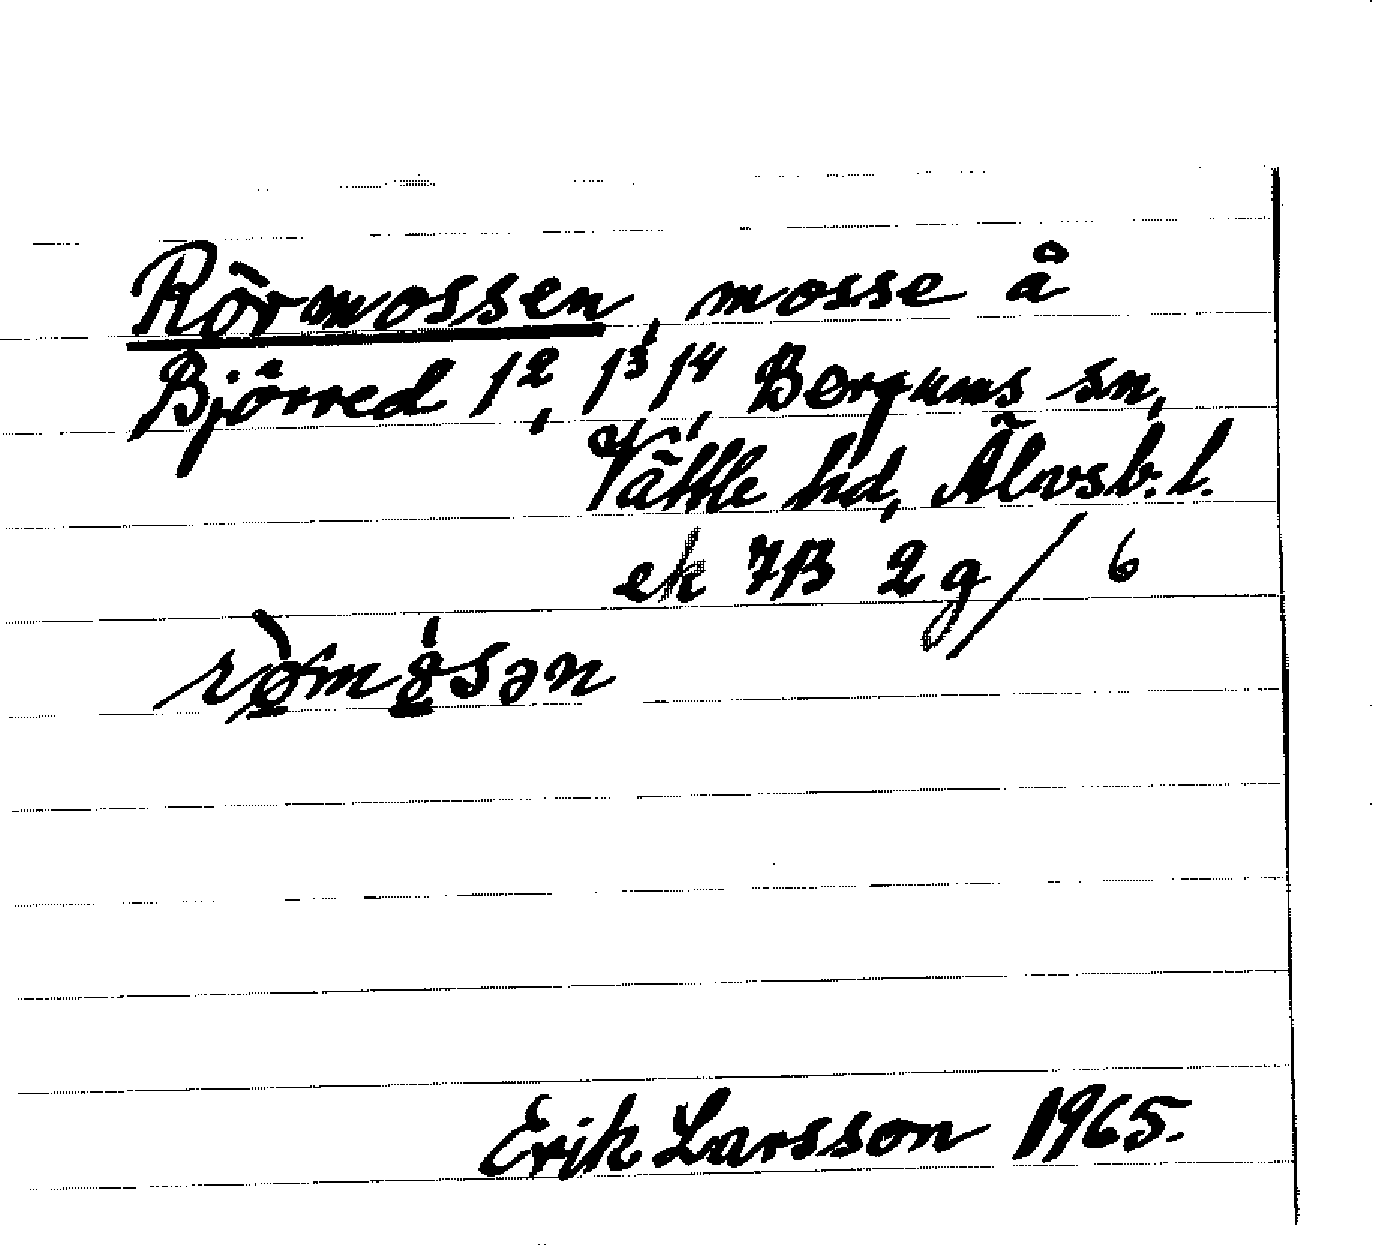 Rörmossen, mosse å
Björred 1², 1³, 1⁴, Bergums sn,
Vättle hd, Älvsb. l.
ek 7B 2g/6
rø̀mǿsən
Erik Larsson 1965.